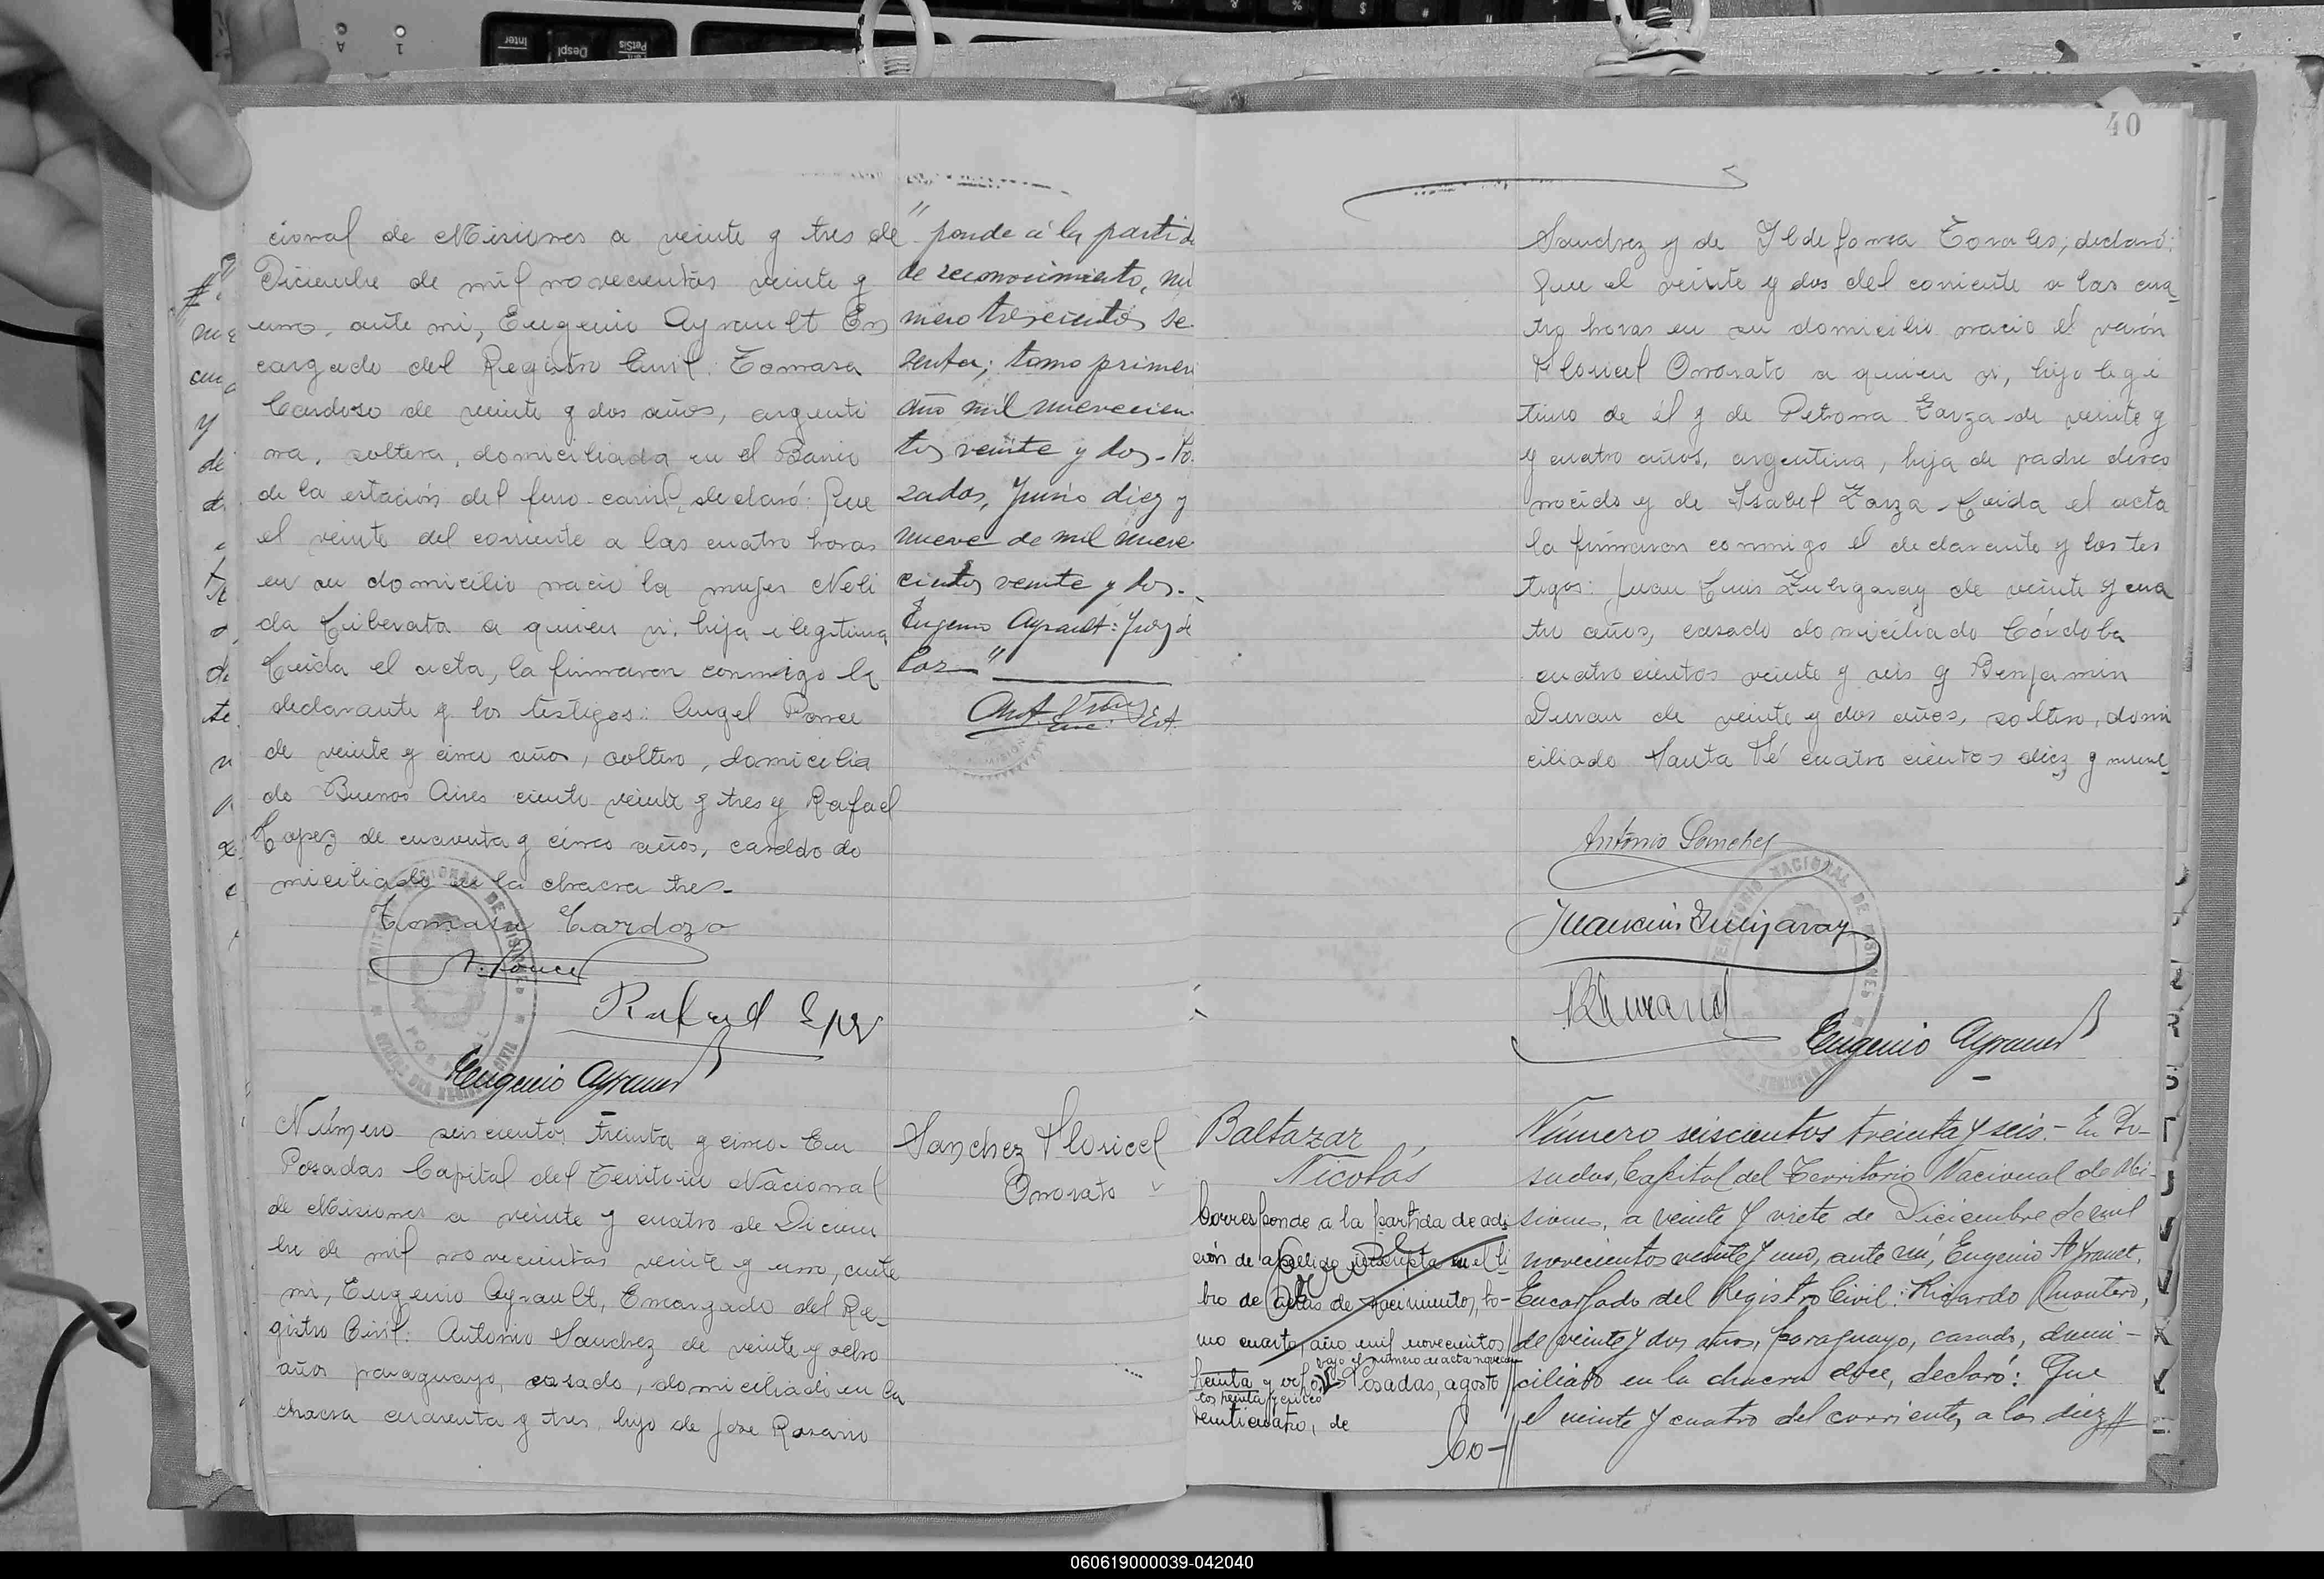 40
cional de Misiones a veinte y tres de
Diciembre de mil novecientos veinte y
uno, ante mi, Eugenio Ayrault En
cargado del Registro Civil: Tomasa
Cardoso de veinte y dos años, argenti
na, soltera, domiciliada en el Barrio
de la estación del ferro-carril, declaró: Que
el veinte del corriente a las cuatro horas
en su domicilio nació la mujer Neli
da Liberata a quien vi, hija ilegitima
Leida el acta, la firmaron conmigo la
declarante y los testigos: Angel Ponce
de veinte y cinco años, soltero, domicilia
do Buenos Aires ciento veinte y tres y Rafael
Lopez de cuarenta y cinco años, casado do
miciliado en la chacra tres.
Tomasa Cardozo
A. Ponce
Rafael
Eugenio Ayrault
" ponde á la partida
de reconocimiento, nu
mero trescientos se
senta; tomo primero
año mil novecien
tos veinte y dos.- Po
sadas, Junio diez y
nueve de mil nove
cientos veinte y dos.-
Eugenio Ayrault: Juez de
Paz "
Número seiscientos treinta y cinco. En
Posadas Capital del Territorio Nacional
de Misiones a veinte y cuatro de Diciem
bre de mil novecientos veinte y uno, ante
mi, Eugenio Ayrault, Encargado del Re_
gistro Civil: Antonio Sanchez de veinte y ocho
años paraguayo, casado, domiciliado en la
chacra cuarenta y tres, hijo de Jose Rosario
Sanchez Floricel
Onorato
Sanchez y de Ildefonsa Torales; declaró:
Que el veinte y dos del corriente a las cua_
tro horas en su domicilio nació el varón
Floricel Onorato a quien vi, hijo legi
timo de él y de Petrona Zarza de veinte y
y cuatro años, argentina, hija de padre desco
nocido y de Isabel Zarza. Leida el acta
la firmaron conmigo el declarante y los tes
tigos: Juan Luis Zubigaray de veinte y cua
tro años, casado domiciliado Córdoba
cuatrocientos veinte y seis y Benjamin
Duran de veinte y dos años, soltero, domi
ciliado Santa Fé cuatrocientos diez y nueve
Antonio Sanchez
Eugenio Ayrault
Baltazar
Nicolás
Corresponde a la partida de adi
ción de apellido inscripta en el li
bro de actas de nacimientos, to-
mo cuarto, año mil novecientos
treinta y ocho Posadas, agosto
veinticuatro, de
Co-
Número seiscientos treinta y seis.- En Po-
sadas, Capital del Territorio Nacional de Mi-
siones, a veinte y siete de Diciembre de mil
novecientos veinte y uno, ante mí, Eugenio Ayrault,
Encargado del Registro Civil: Ricardo
de veinte y dos años, paraguayo, casado, domi-
ciliado en la chacra doce, declaró: Que
el veinte y cuatro del corriente, a las diez
060619000039-042040